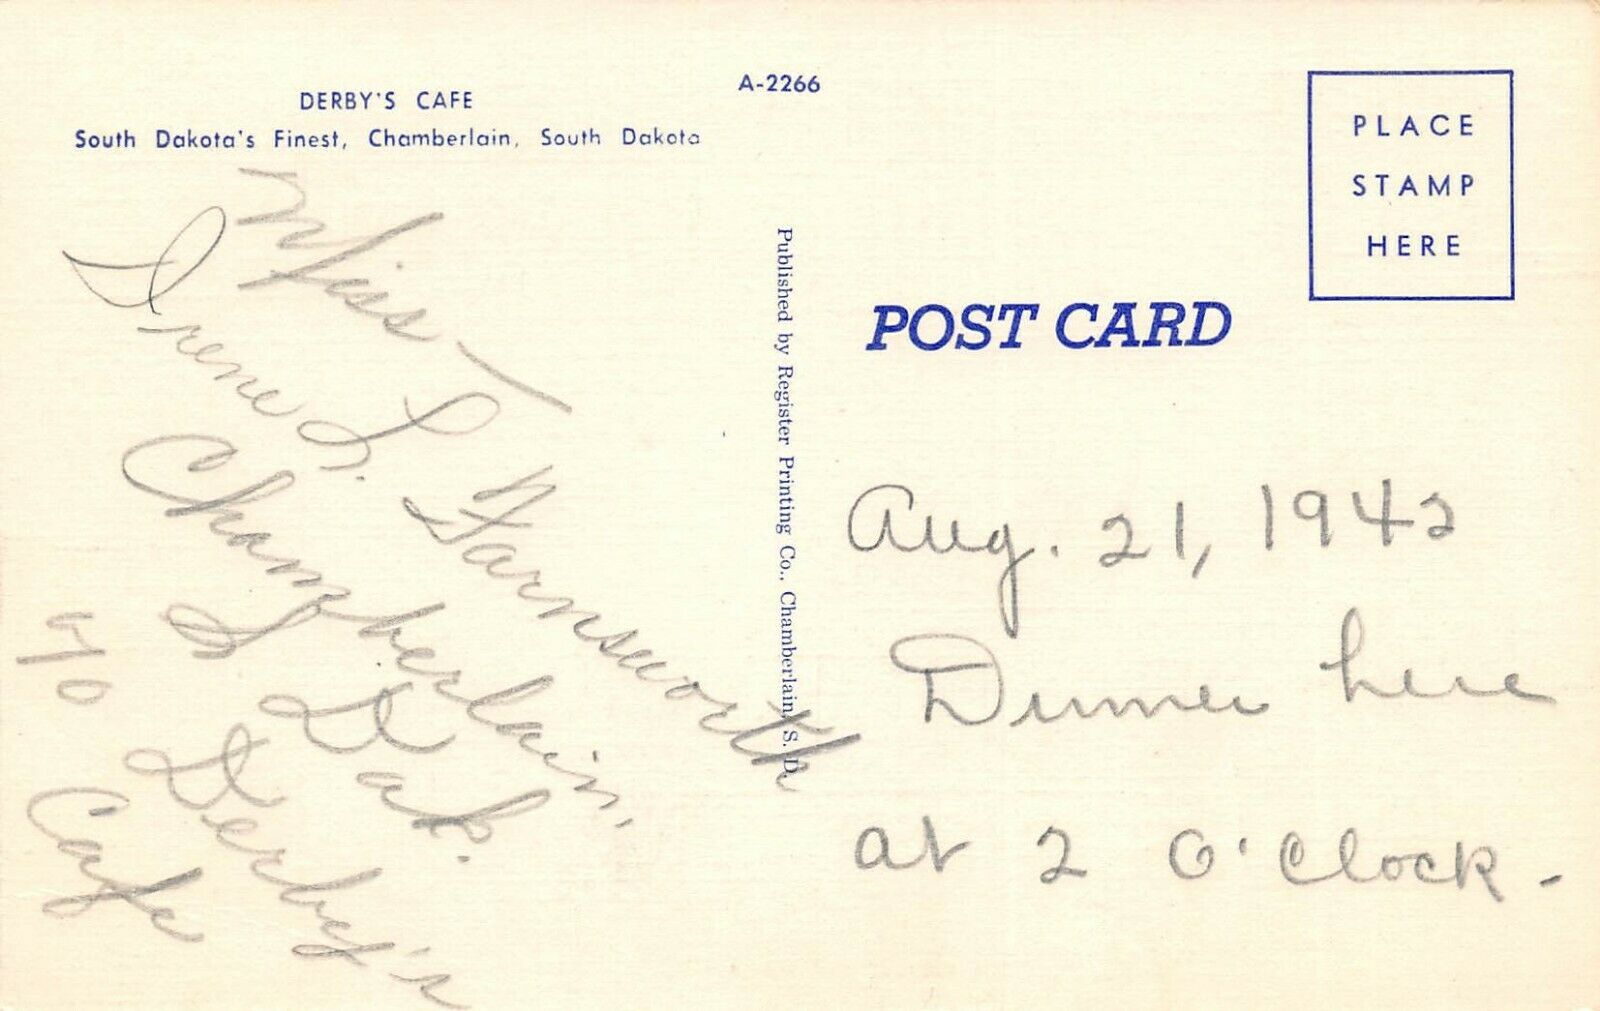 DERBY'S CAFE
South Dakota's Finest, Chamberlain, South Dakota
Miss —
Irene L. Farnsworth
Chamberlain,
S Dak.
c/o Derby's
Cafe
A-2266
Published by Register Printing Co., Chamberlain, S. D.
PLACE
STAMP
HERE
POST CARD
Aug. 21, 1942
Dinner here
at 2 O'Clock.-